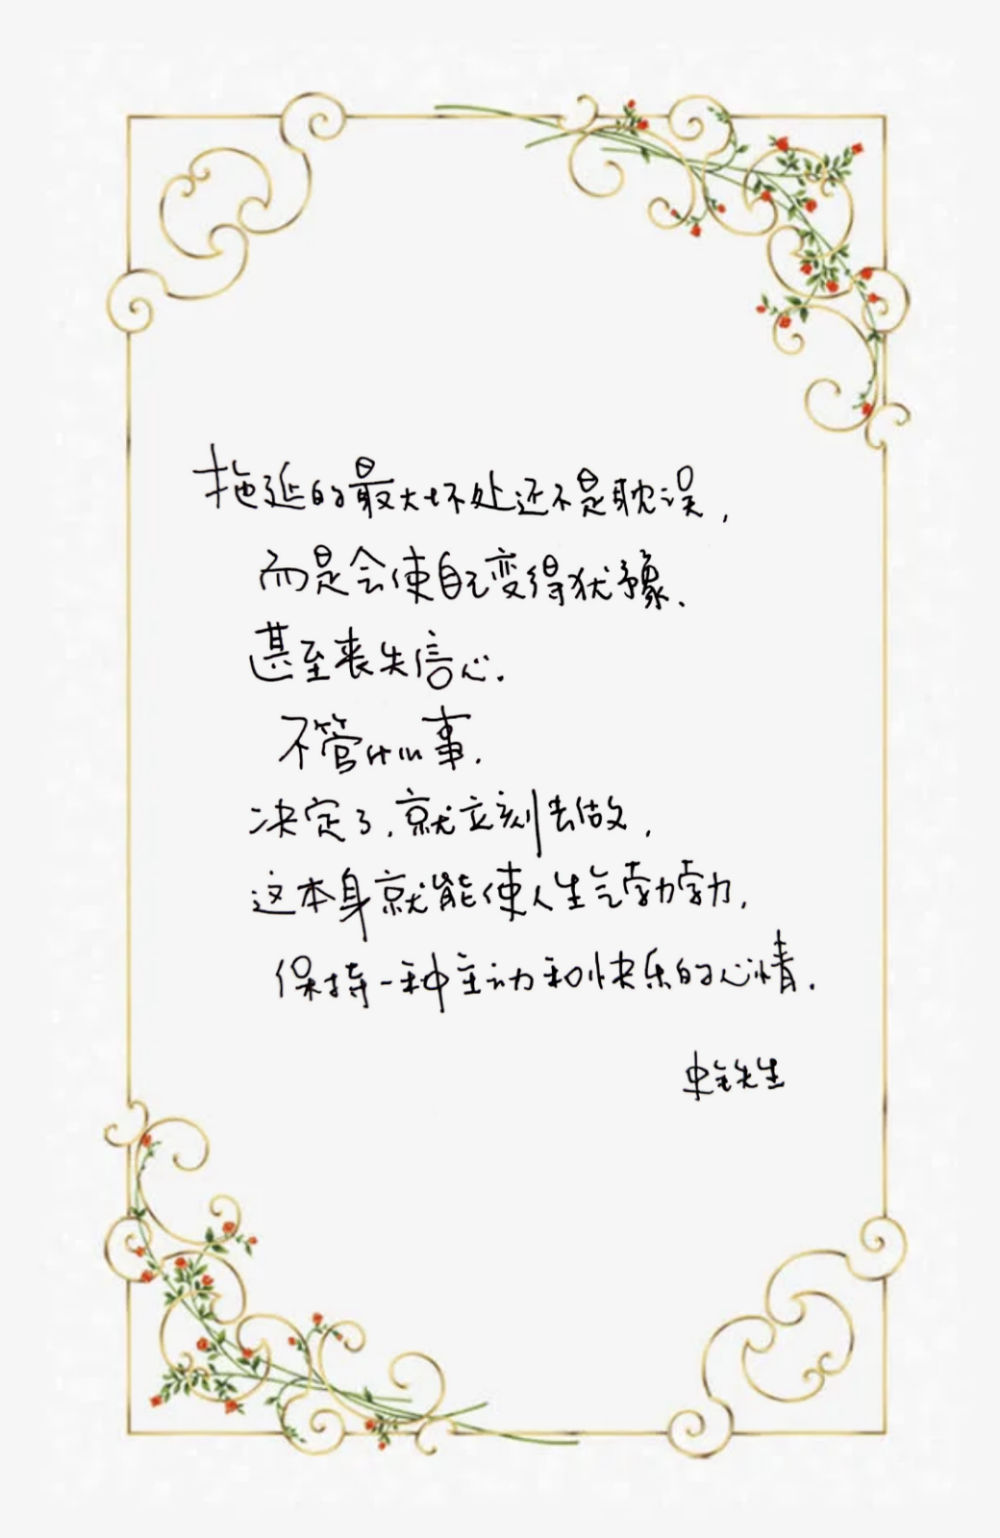 拖延的最大坏处还不是耽误，
而是会使自己变得犹豫、
甚至丧失信心.
不管什么事.
决定了,就立刻去做，
这本身就能使人生气勃勃，
保持一种主动和快乐的心情.
史铁生